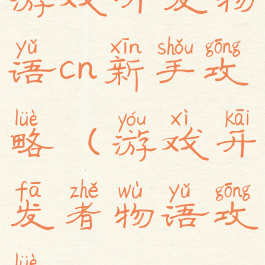 游戏开发物
yǔ xīn shǒu gōng
语cn新手攻
lüè yóu xì kāi
略（游戏开
fā zhě wù yǔ gōng
发者物语攻
lüè